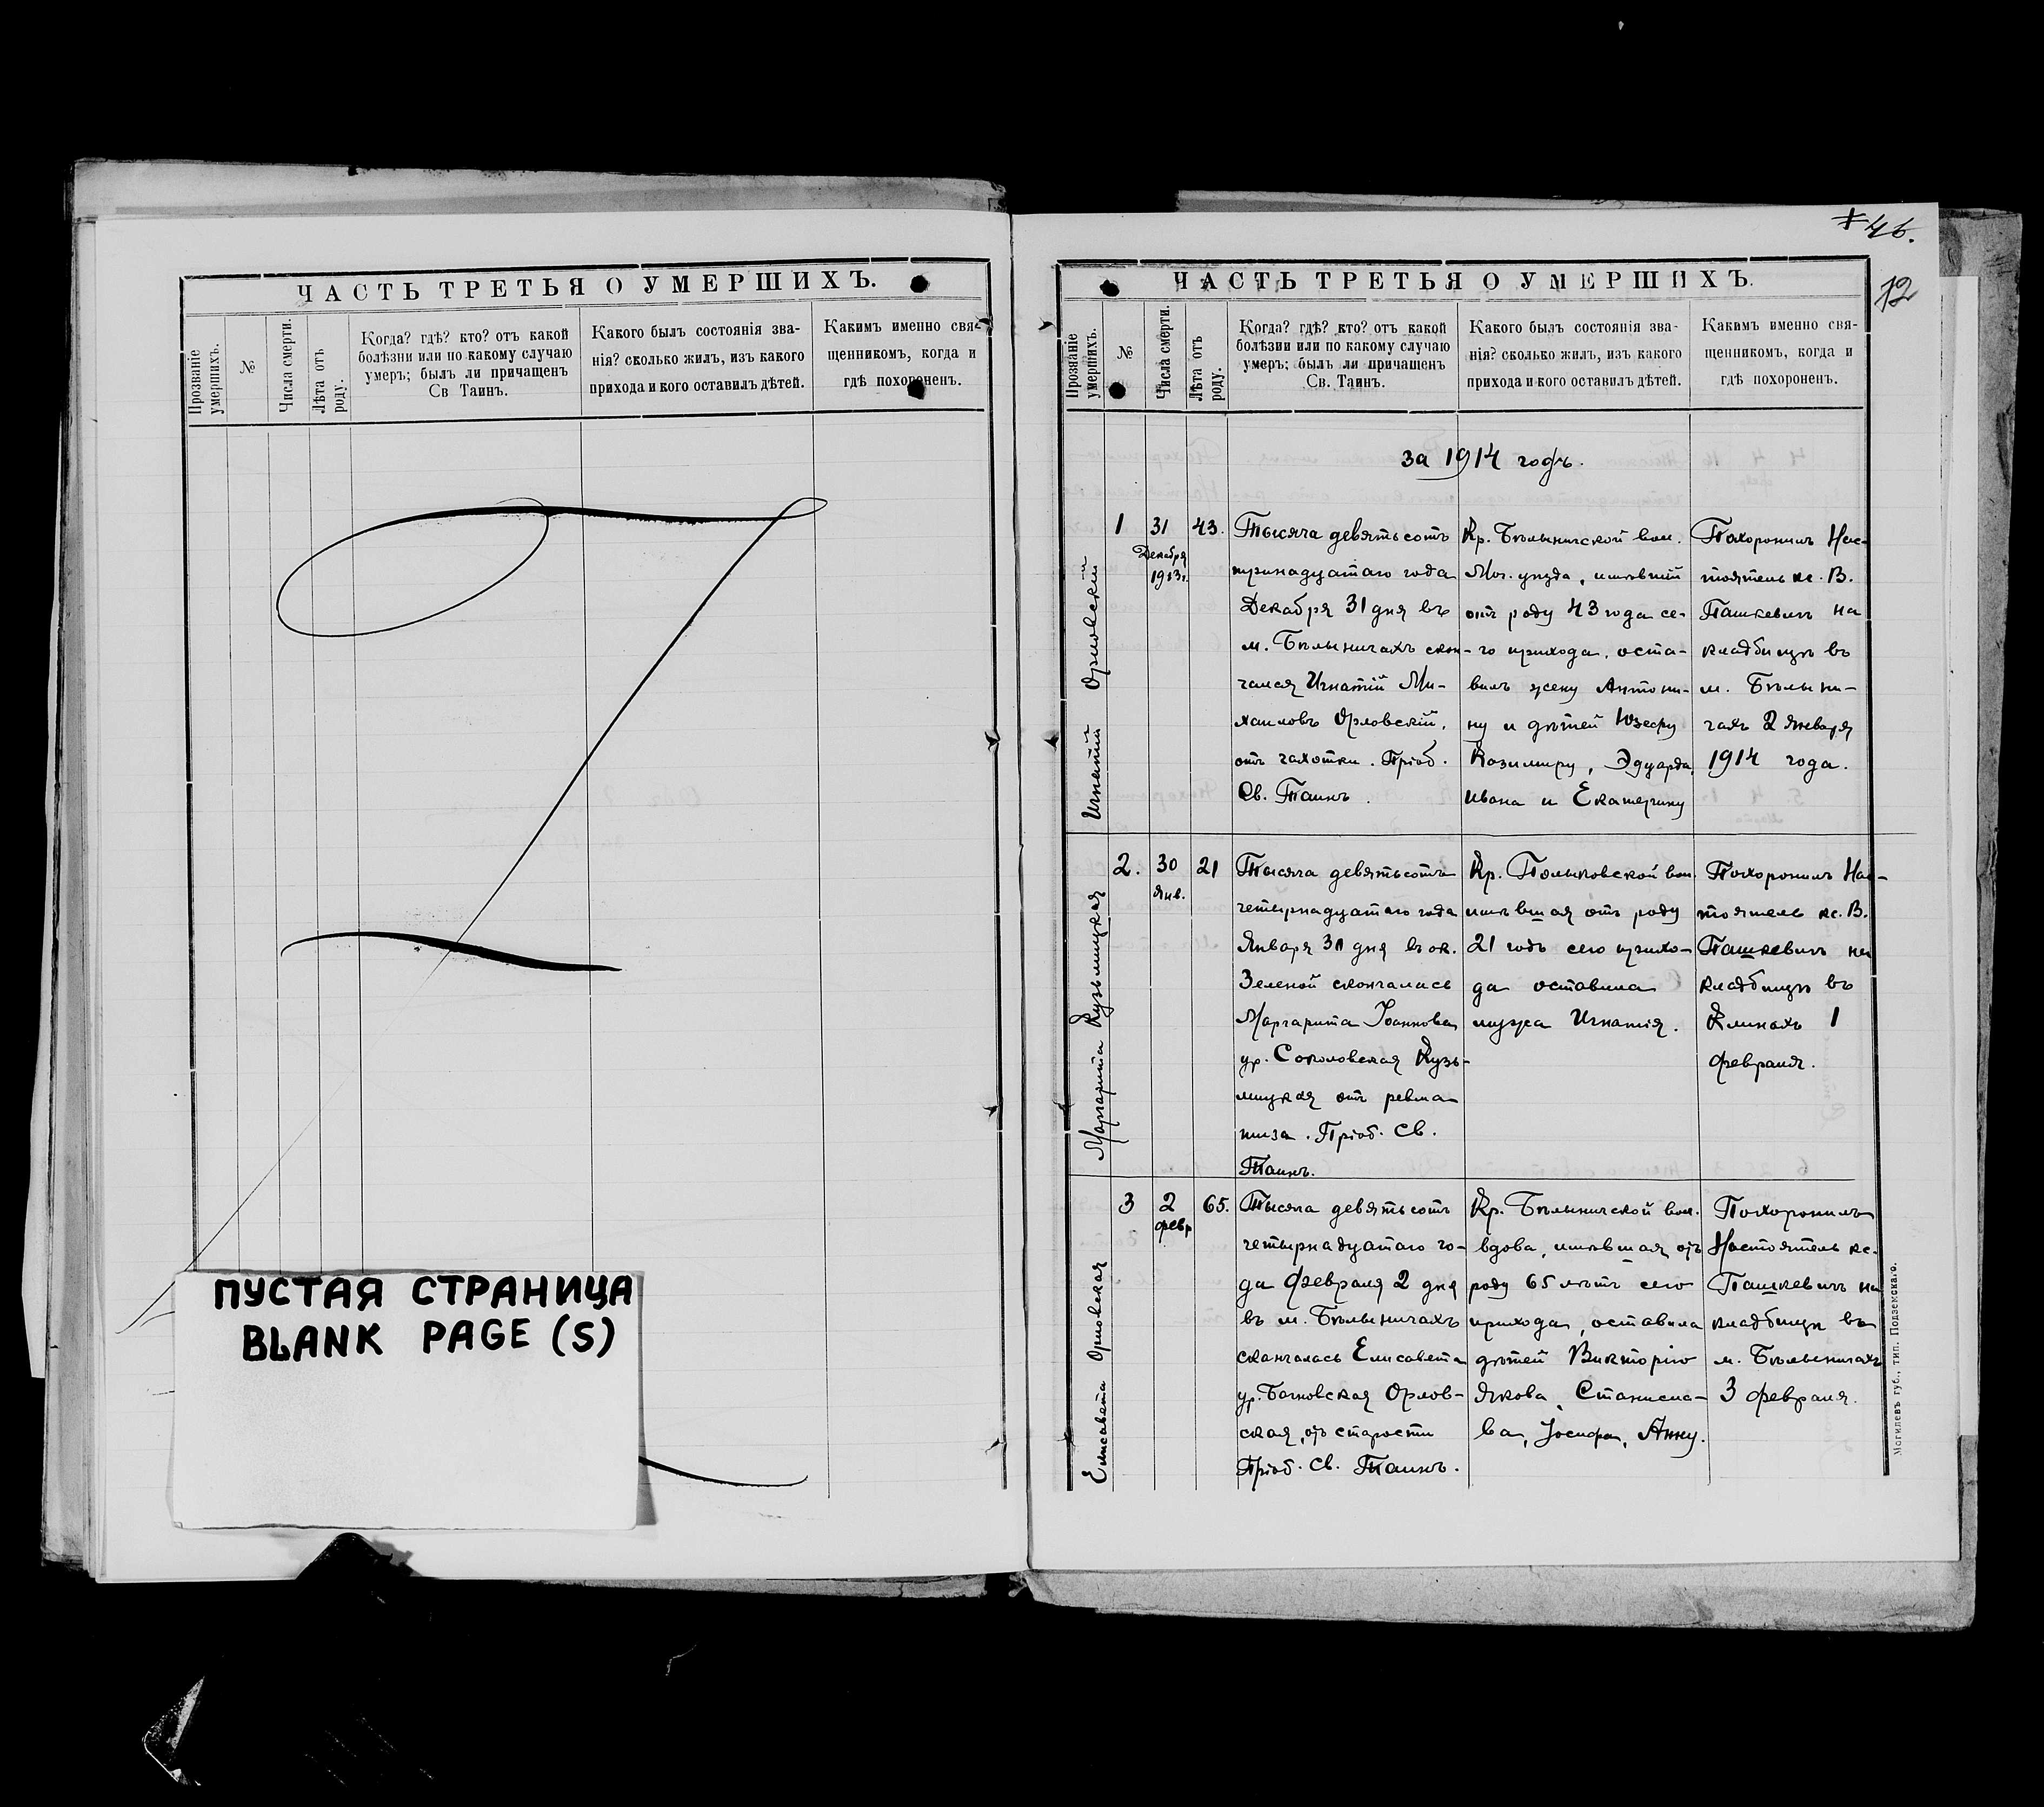 ЧАСТЬ ТРЕТЬЯ О УМЕРШИХЪ.
Прозваніе умершихъ.
№
Числа смерти.
Лѣта отъ роду.
Когда? гдѣ? кто? отъ какой
болѣзни или по какому случаю
умеръ; былъ ли причащенъ
Св Таинъ.
Какого былъ состоянія зва-
нія? сколько жилъ, изъ какого
прихода и кого оставилъ дѣтей.
Каким именно свя-
щенникомъ, когда и
гдѣ похороненъ.
ПУСТАЯ СТРАНИЦА
BLANK PAGE (S)
46.
12
ЧАСТЬ ТРЕТЬЯ О УМЕРШИХЪ.
Прозваніе умершихъ.
№
Числа смерти.
Лѣта отъ роду.
Когда? гдѣ? кто? отъ какой
болѣзни или по какому случаю
умеръ; былъ ли причащенъ
Св. Таинъ.
Какого былъ состоянія зва-
нія? сколько жилъ, изъ какого
прихода и кого оставилъ дѣтей.
Какимъ именно свя-
щенникомъ, когда и
гдѣ похороненъ.
за 1914 годъ.
Игнатій Орловскій
1
31
Декабря
1913г.
43.
Тысяча девятьсотъ
тринадцатаго года
Декабря 31 дня въ
м. Бѣлыничахъ скон-
чался Игнатій Ми-
хаиловъ Орловскій,
отъ чахотки. Пріоб.
Св. Таинъ.
Кр. Бѣлыничской вол.
Мог. уѣзда, имѣвшій
отъ роду 43 года се-
го прихода, оста-
вилъ жену Антони-
ну и дѣтей Юзефу
Казимиру, Эдуарда,
Ивана и Екатерину
Похоронилъ Нас-
тоятель кс. В.
Пашкевичъ на
кладбищѣ въ
м. Бѣлыни-
чахъ 2 Января
1914 года.
Маргарита Кузьмицкая
2.
30
Янв.
21
Тысяча девятьсотъ
четырнадцатаго года
Января 30 дня въ ок.
Зеленой скончалась
Маргарита Іоаннова
ур. Соколовская Кузь-
мицкая отъ ревма
тиза. Пріоб. Св.
Таинъ.
Кр. вол.
имѣвшая отъ роду
21 годъ сего прихо-
да оставила
мужа Игнатія.
Похоронилъ Нас-
тоятель кс. В.
Пашкевичъ на
кладбищѣ въ
Клинахъ 1
февраля.
Елисавета Орловская
3
2
февр
65.
Тысяча девятьсотъ
четырнадцатаго го-
да Февраля 2 дня
въ м. Бѣлыничахъ
скончалась Елисавета
ур. Орлов-
ская, отъ старости
Пріоб. Св. Таинъ.
Кр. Бѣлыничской вол.
вдова, имѣвшая отъ
роду 65 лѣтъ сего
прихода, оставила
дѣтей Викторію
Якова, Станисла-
ва, Іосифа, Анну.
Похоронилъ
Настоятель кс.
Пашкевичъ на
кладбищѣ въ
м. Бѣлыничахъ
3 февраля.
Могилевъ губ., тип. Подземскаго.